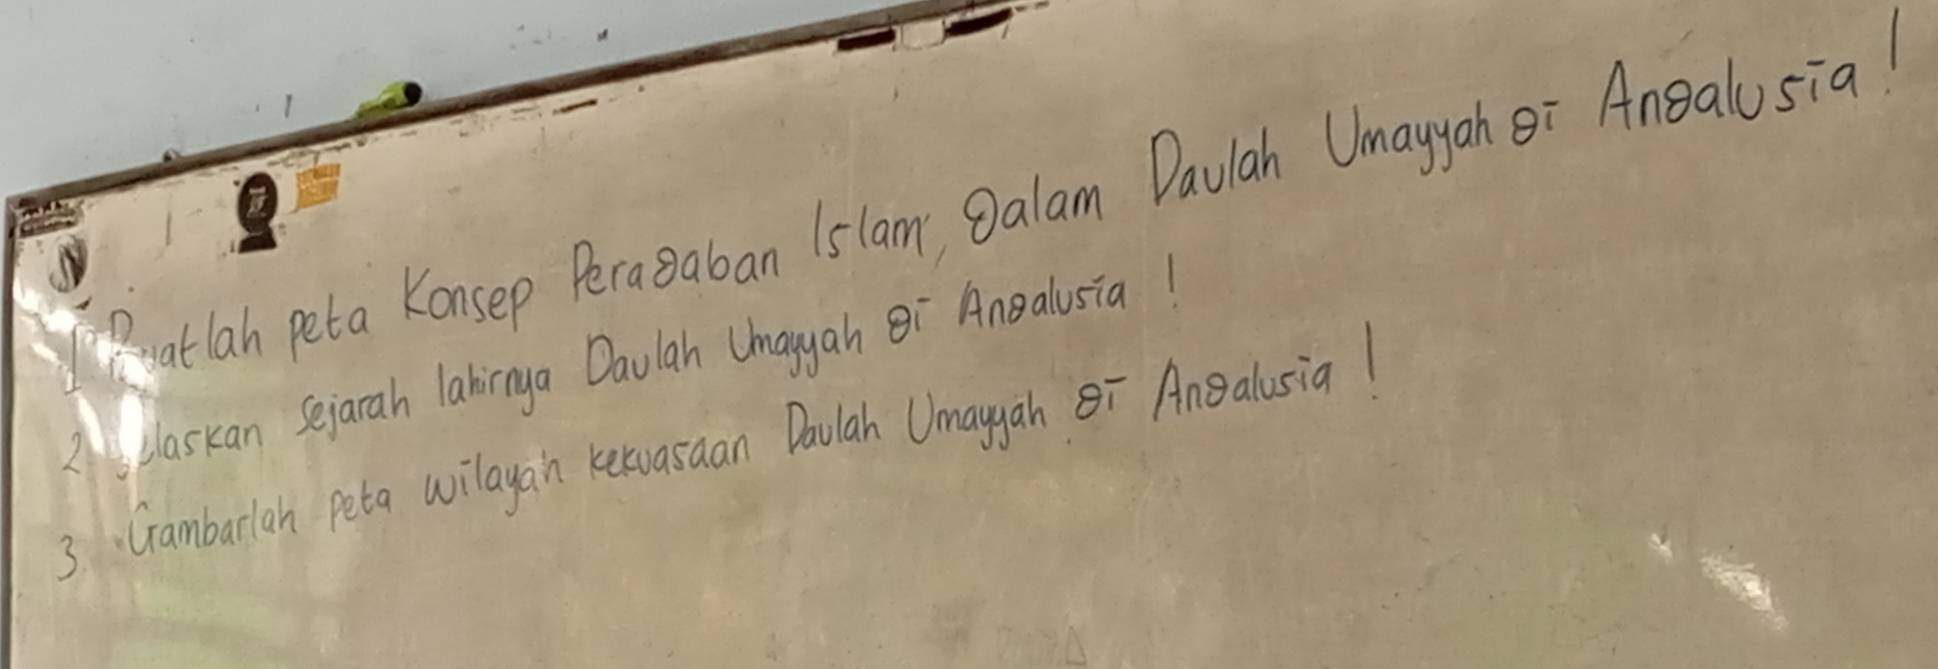 1. Buatlah peta Konsep Peradaban Islam, dalam Daulah Umayyah di Andalusia!
2. Jelaskan sejarah lahirnya Daulah Umayyah di Andalusia!
3. Gambarlah peta wilayah kekuasaan Daulah Umayyah di Andalusia!